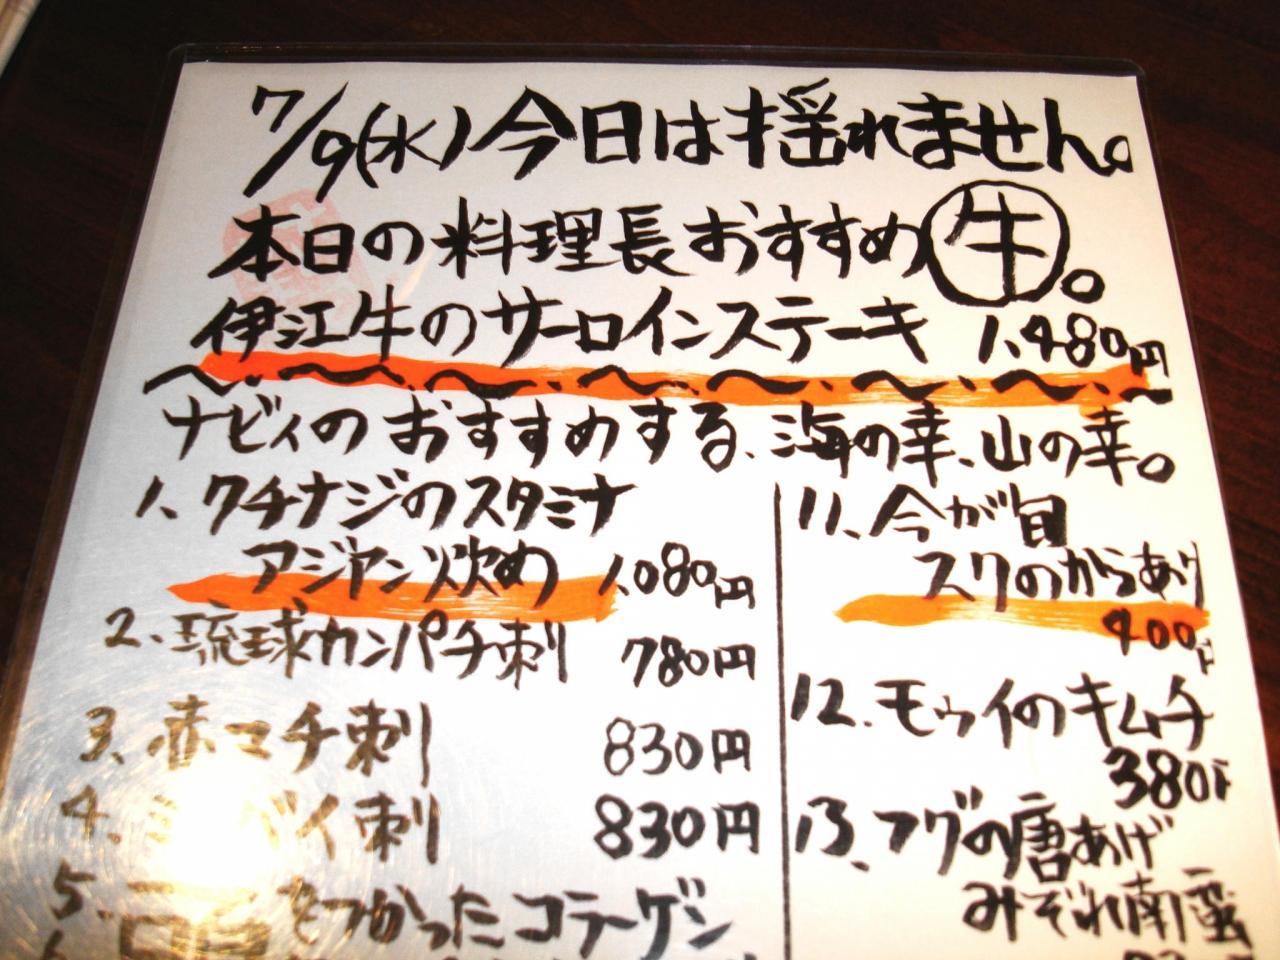 7/9(水)今日は揺れません。
本日の料理長おすすめ牛。
伊江牛のサーロインステーキ 1,480円
ナビィのおすすめする、海の幸、山の幸。
1、クチナジのスタミナ
アジヤン炊め 1,080円
2、琉球カンパチ刺 780円
3、赤マチ刺 830円
4、バイ刺 830円
5、をつかったコラーゲン
11、今が旬
スクのからあげ
400円
12、モウイのキムチ
380円
13、フグの唐あげ
みぞれ南蛮